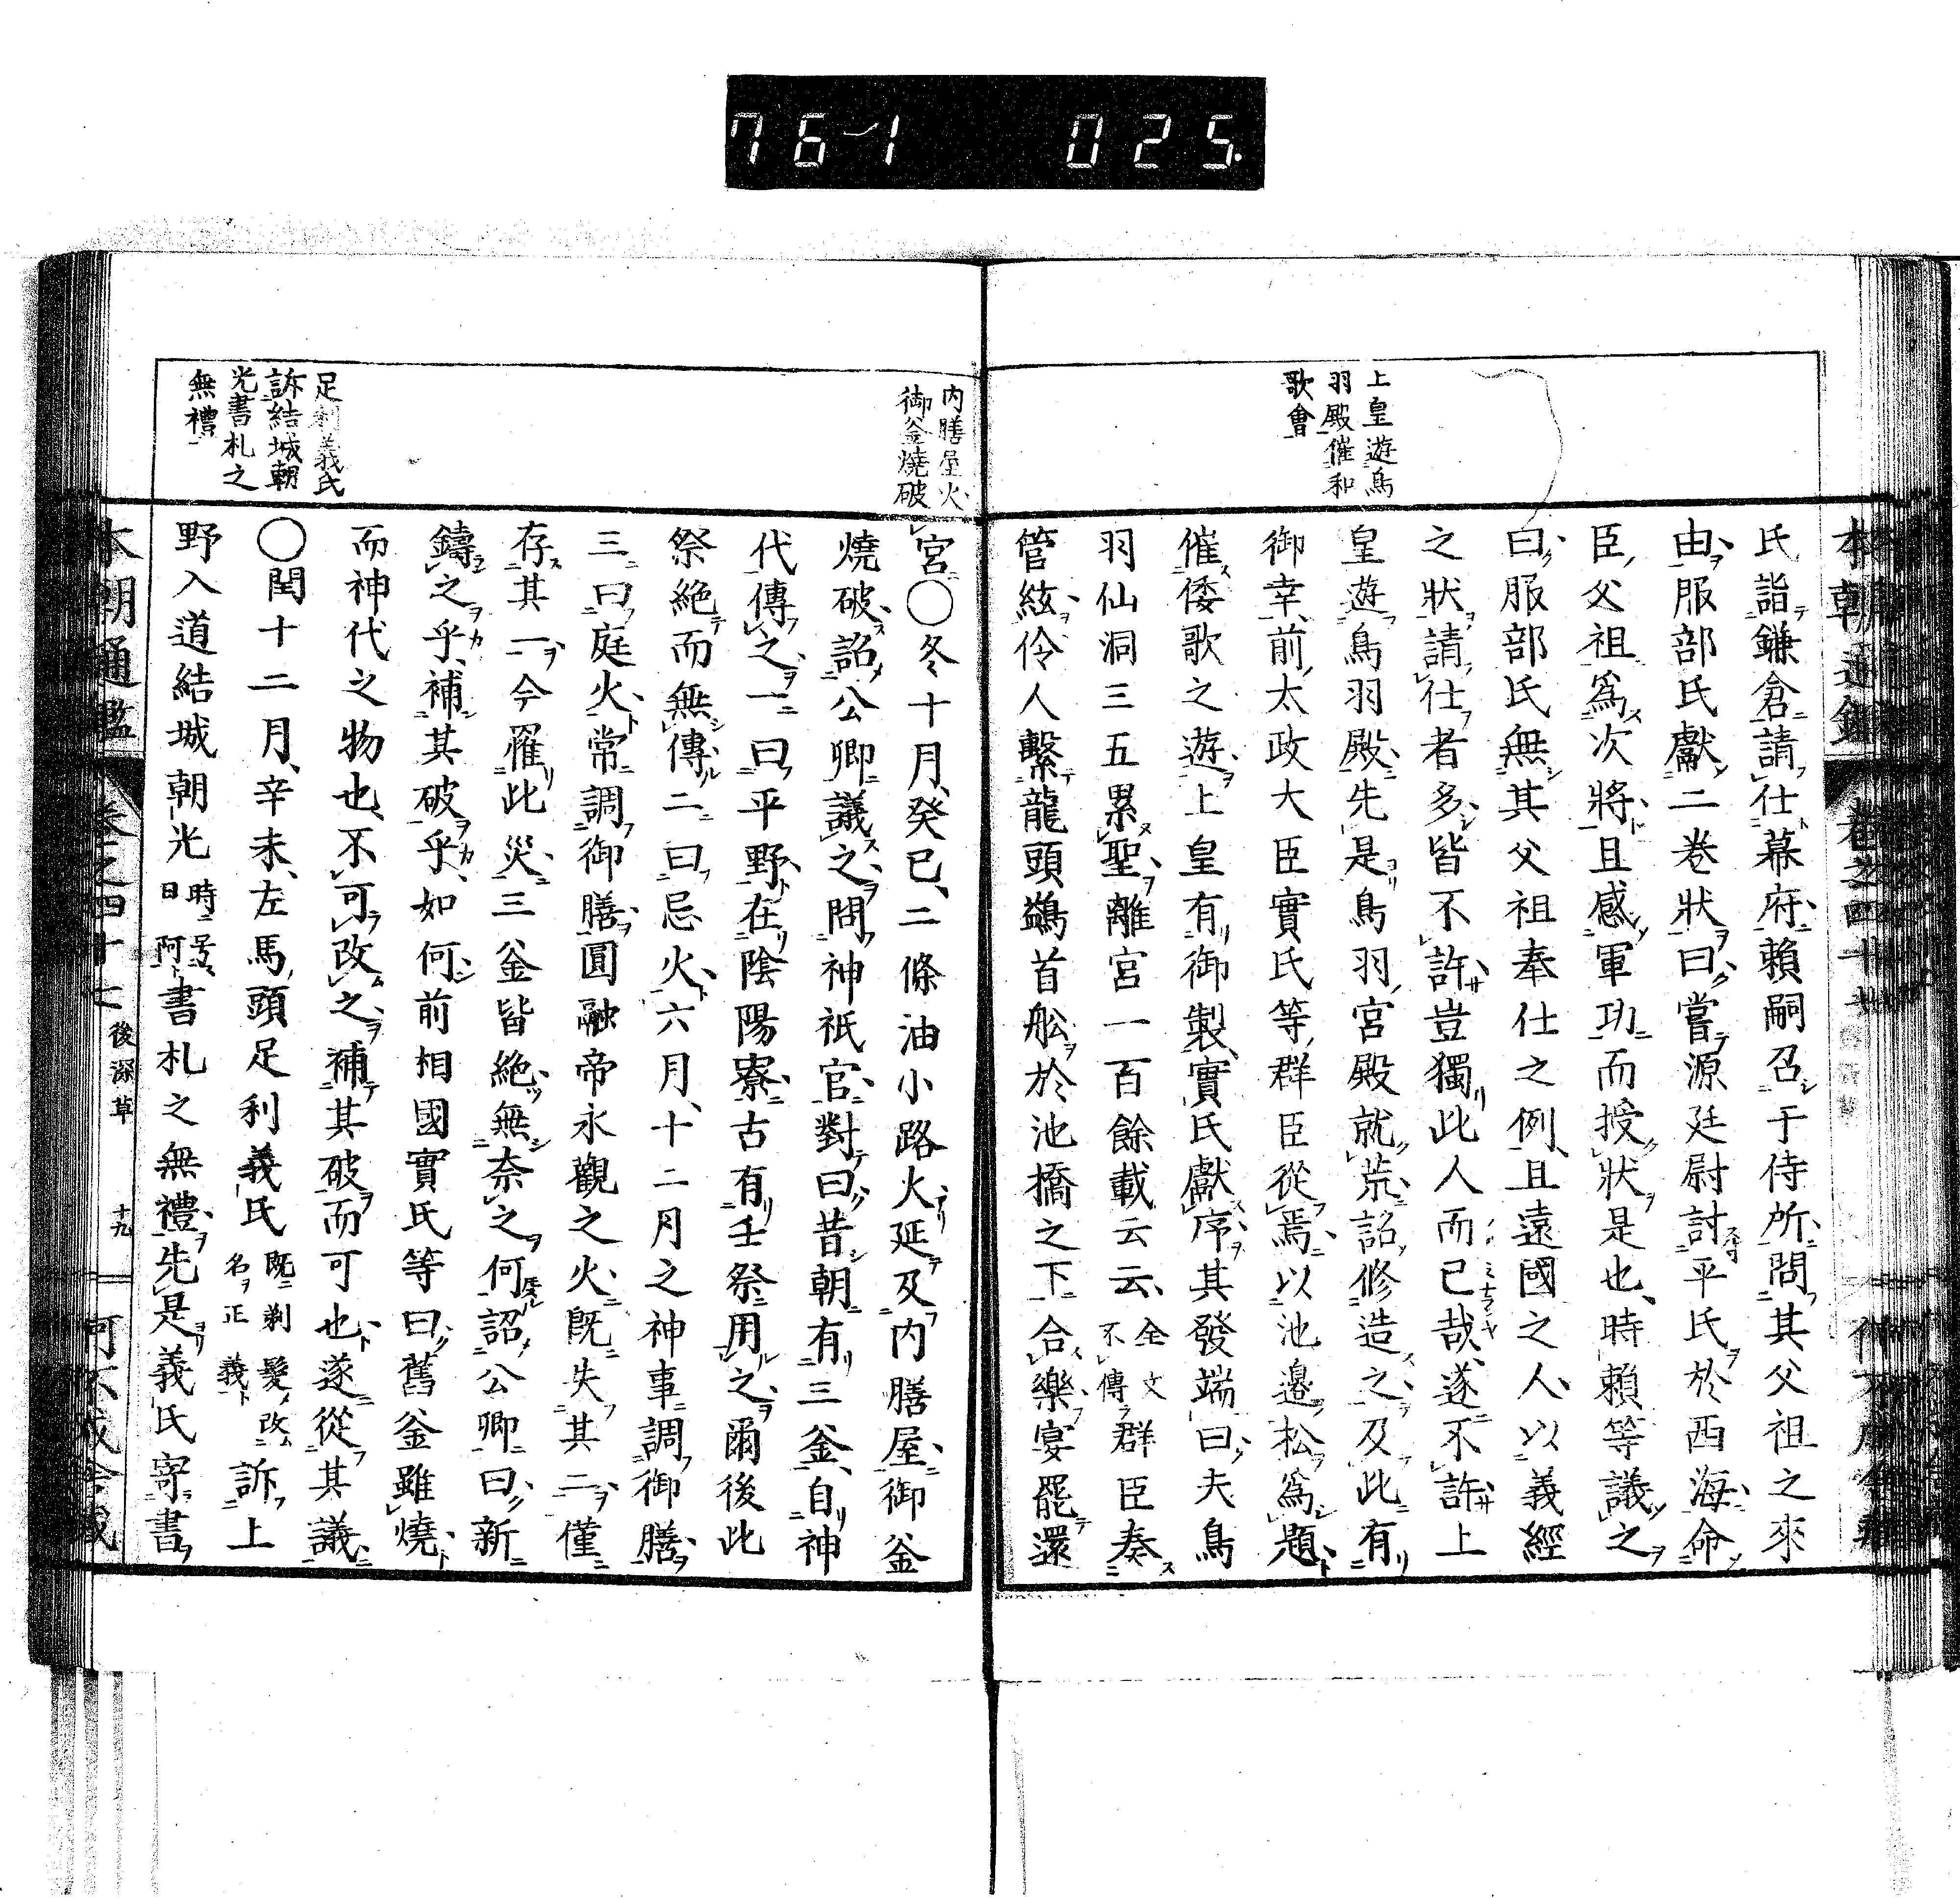 76-1 025.
上皇遊鳥
羽殿催和
歌會
氏詣鎌倉請仕幕府賴嗣召于侍所問其父祖之來
由服部氏獻二卷狀曰嘗源廷尉討平氏於西海命
臣父祖爲次將且感軍功而授狀是也時賴等議之
曰服部氏無其父祖奉仕之例且遠國之人以義經
之狀請仕者多皆不許豈獨此人而已哉遂不許上
皇遊鳥羽殿先是鳥羽宮殿就荒詔修造之及此有
御幸前太政大臣實氏等群臣從焉以池邊松爲題
催倭歌之遊上皇有御製實氏獻序其發端曰夫鳥
羽仙洞三五累聖離宮一百餘載云云全文不傳群臣奏
管絃伶人繫龍頭鷁首舩於池橋之下合樂宴罷還
內膳屋火
御釜燒破
宮〇冬十月癸巳二條油小路火延及内膳屋御釜
燒破詔公卿議之問神祇官對曰昔朝有三釜自神
代傳之一曰平野在陰陽寮古有壬祭用之爾後此
祭絶而無傳二曰忌火六月十二月之神事調御膳
三曰庭火常調御膳圓融帝永觀之火既失其二僅
存其一今罹此災三釜皆絶無奈之何詔公卿曰新
鑄之乎補其破乎如何前相國實氏等曰舊釜雖燒
而神代之物也不可改之補其破而可也遂從其議
〇閏十二月辛未左馬頭足利義氏既剃髮改名正義訴上
野入道結城朝光時號日阿書札之無禮先是義氏寄書
足利義氏
訴結城朝
光書札之
無禮
本朝通鑑 卷之四十七 後深草 十九